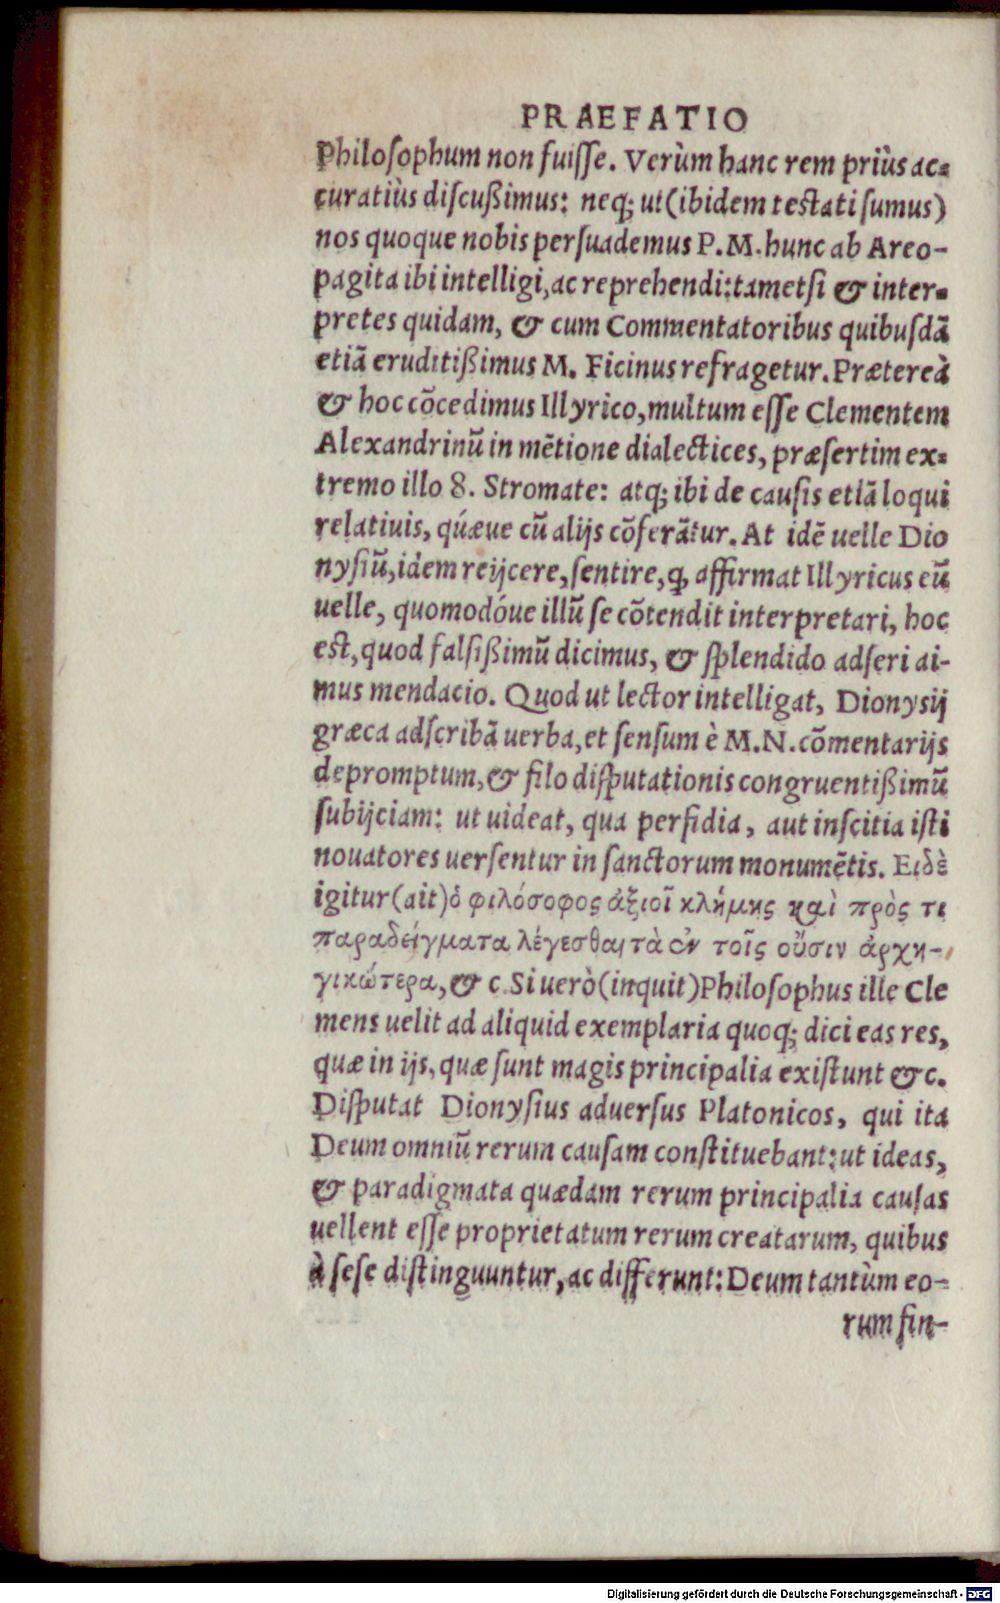 PRAEFATIO
Philosophum non fuisse. Verùm hanc rem priùs ac-
curatiùs discußimus: neq; ut (ibidem testati sumus)
nos quoque nobis persuademus P. M. hunc ab Areo-
pagita ibi intelligi, ac reprehendi: tametsi & inter-
pretes quidam, & cum Commentatoribus quibusdā
etiā eruditißimus M. Ficinus refragetur. Prætereà
& hoc cōcedimus Illyrico, multum esse Clementem
Alexandrinū in mētione dialectices, præsertim ex-
tremo illo 8. Stromate: atq; ibi de causis etiā loqui
relatiuis, quǽue cū alijs cōferātur. At idē uelle Dio
nysiū, idem reijcere, sentire, q̃ affirmat Illyricus eū
uelle, quomodóue illū se cōtendit interpretari, hoc
est, quod falsißimū dicimus, & splendido adseri ai-
mus mendacio. Quod ut lector intelligat, Dionysij
græca adscribā uerba, et sensum è M. N. cōmentarijs
depromptum, & filo disputationis congruentißimū
subijciam: ut uideat, qua perfidia, aut inscitia isti
nouatores uersentur in sanctorum monumētis. Ειδὲ
igitur (ait) ὁ φιλόσοφος ἀξιοῖ κλήμης καὶ πρὸς τι
παραδείγματα λέγεσθαι τὰ ἐν τοῖς οὖσιν ἀρχη-
γικώτερα, & c. Si uerò (inquit) Philosophus ille Cle
mens uelit ad aliquid exemplaria quoq; dici eas res,
quæ in ijs, quæ sunt magis principalia existunt &c.
Disputat Dionysius aduersus Platonicos, qui ita
Deum omniū rerum causam constituebant: ut ideas,
& paradigmata quædam rerum principalia causas
uellent esse proprietatum rerum creatarum, quibus
à sese distinguuntur, ac differunt: Deum tantùm eo-
rum fin-
Digitalisierung gefördert durch die Deutsche Forschungsgemeinschaft - DFG